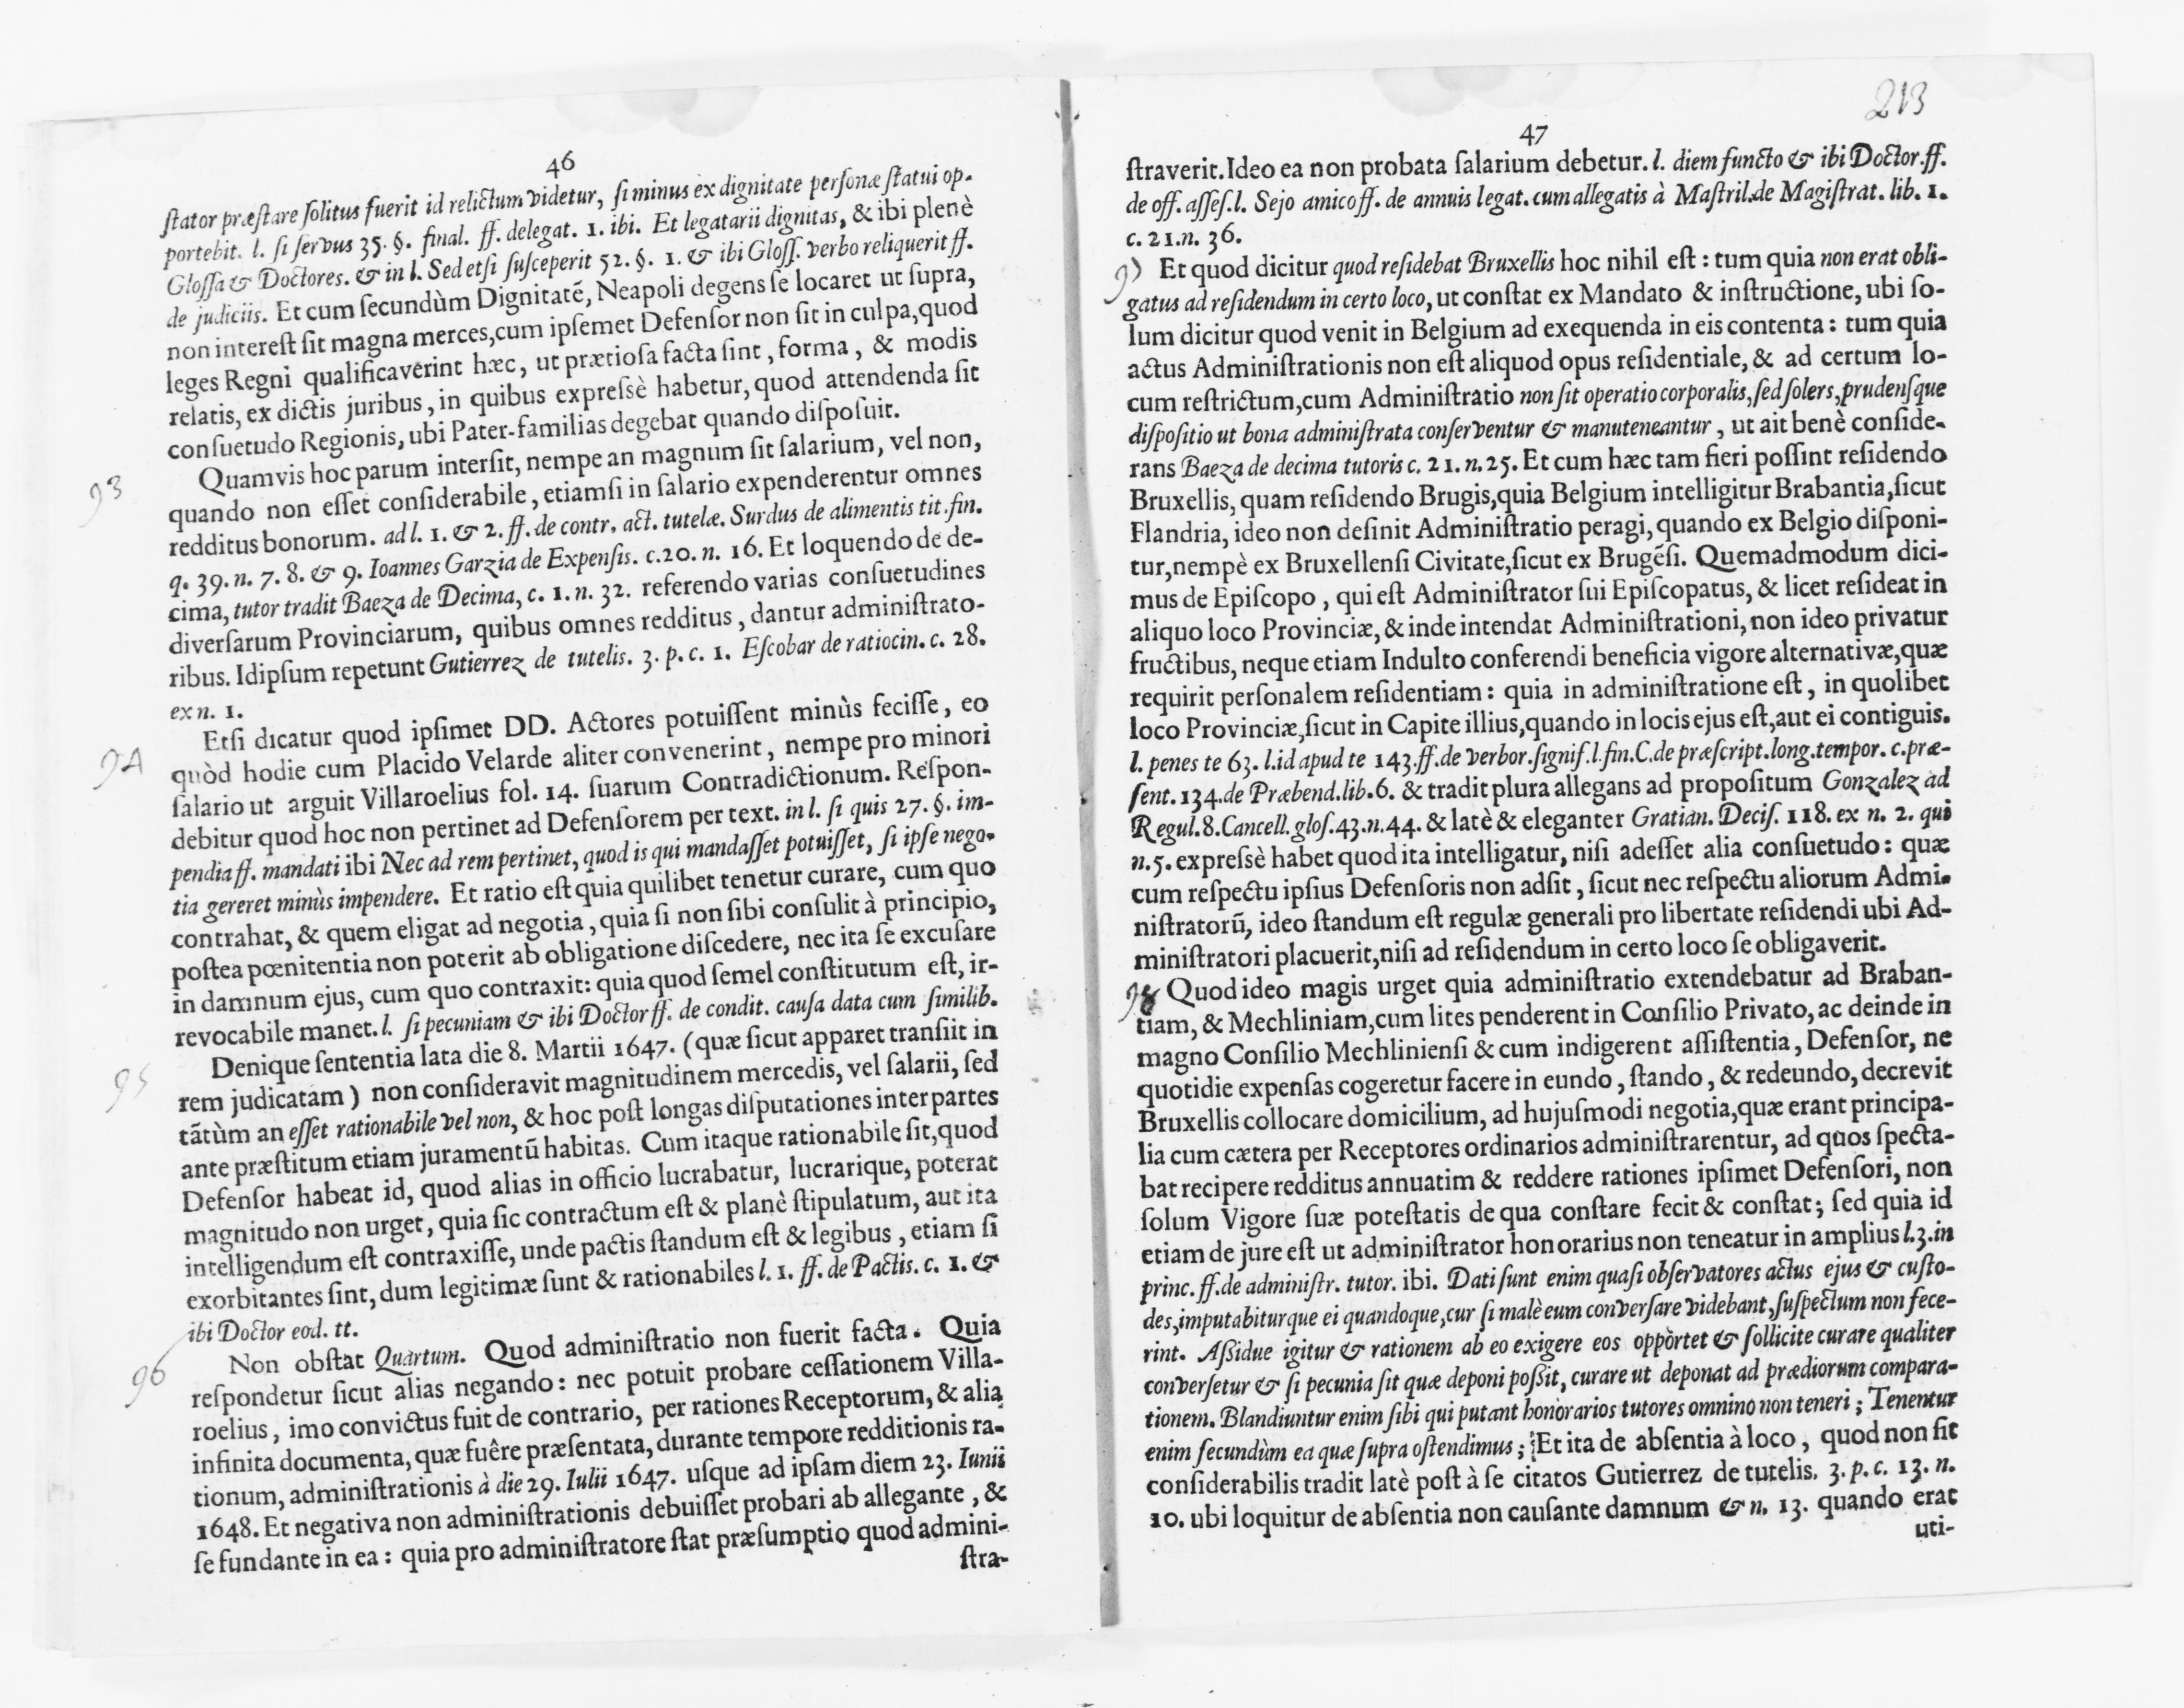 46
ſtator præſtare ſolitus fuerit id relictum videtur, ſi minus ex dignitate perſonæ ſtatui op-
portebit. l. ſi ſervus 35. §. final. ff. delegat. 1. ibi. Et legatarii dignitas, & ibi plenè
Gloſſa & Doctores. & in l. Sed etſi ſuſceperit 52. §. 1. & ibi Gloſſ. verbo reliquerit ff.
de judiciis. Et cum ſecundùm Dignitatē, Neapoli degens ſe locaret ut ſupra,
non intereſt ſit magna merces, cum ipſemet Defenſor non ſit in culpa, quod
leges Regni qualificaverint hæc, ut prætioſa facta ſint, forma, & modis
relatis, ex dictis juribus, in quibus expreſsè habetur, quod attendenda ſit
conſuetudo Regionis, ubi Pater-familias degebat quando diſpoſuit.
93
Quamvis hoc parum interſit, nempe an magnum ſit ſalarium, vel non,
quando non eſſet conſiderabile, etiamſi in ſalario expenderentur omnes
redditus bonorum. ad l. 1. & 2. ff. de contr. act. tutelæ. Surdus de alimentis tit. fin.
q. 39. n. 7. 8. & 9. Ioannes Garzia de Expenſis. c. 20. n. 16. Et loquendo de de-
cima, tutor tradit Baeza de Decima, c. 1. n. 32. referendo varias conſuetudines
diverſarum Provinciarum, quibus omnes redditus, dantur adminiſtrato-
ribus. Idipſum repetunt Gutierrez de tutelis. 3. p. c. 1. Eſcobar de ratiocin. c. 28.
ex n. 1.
94
Etſi dicatur quod ipſimet DD. Actores potuiſſent minùs feciſſe, eo
quòd hodie cum Placido Velarde aliter convenerint, nempe pro minori
ſalario ut arguit Villaroelius fol. 14. ſuarum Contradictionum. Reſpon-
debitur quod hoc non pertinet ad Defenſorem per text. in l. ſi quis 27. §. im-
pendia ff. mandati ibi Nec ad rem pertinet, quod is qui mandaſſet potuiſſet, ſi ipſe nego-
tia gereret minùs impendere. Et ratio eſt quia quilibet tenetur curare, cum quo
contrahat, & quem eligat ad negotia, quia ſi non ſibi conſulit à principio,
poſtea pœnitentia non poterit ab obligatione diſcedere, nec ita ſe excuſare
in damnum ejus, cum quo contraxit: quia quod ſemel conſtitutum eſt, ir-
revocabile manet. l. ſi pecuniam & ibi Doctor ff. de condit. cauſa data cum ſimilib.
95
Denique ſententia lata die 8. Martii 1647. (quæ ſicut apparet tranſiit in
rem judicatam) non conſideravit magnitudinem mercedis, vel ſalarii, ſed
tātùm an eſſet rationabile vel non, & hoc poſt longas diſputationes inter partes
ante præſtitum etiam juramentū habitas. Cum itaque rationabile ſit, quod
Defenſor habeat id, quod alias in officio lucrabatur, lucrarique, poterat
magnitudo non urget, quia ſic contractum eſt & planè ſtipulatum, aut ita
intelligendum eſt contraxiſſe, unde pactis ſtandum eſt & legibus, etiam ſi
exorbitantes ſint, dum legitimæ ſunt & rationabiles l. 1. ff. de Pactis. c. 1. &
ibi Doctor eod. tt.
96
Non obſtat Quartum. Quod adminiſtratio non fuerit facta. Quia
reſpondetur ſicut alias negando: nec potuit probare ceſſationem Villa-
roelius, imo convictus fuit de contrario, per rationes Receptorum, & alia
infinita documenta, quæ fuêre præſentata, durante tempore redditionis ra-
tionum, adminiſtrationis à die 29. Iulii 1647. uſque ad ipſam diem 23. Iunii
1648. Et negativa non adminiſtrationis debuiſſet probari ab allegante, &
ſe fundante in ea: quia pro adminiſtratore ſtat præſumptio quod admini-
ſtra-
213
47
ſtraverit. Ideo ea non probata ſalarium debetur. l. diem functo & ibi Doctor. ff.
de off. aſſeſ. l. Sejo amico ff. de annuis legat. cum allegatis à Maſtril. de Magiſtrat. lib. 1.
c. 21. n. 36.
Et quod dicitur quod reſidebat Bruxellis hoc nihil eſt: tum quia non erat obli-
gatus ad reſidendum in certo loco, ut conſtat ex Mandato & inſtructione, ubi ſo-
lum dicitur quod venit in Belgium ad exequenda in eis contenta: tum quia
actus Adminiſtrationis non eſt aliquod opus reſidentiale, & ad certum lo-
cum reſtrictum, cum Adminiſtratio non ſit operatio corporalis, ſed ſolers, prudenſque
diſpoſitio ut bona adminiſtrata conſerventur & manuteneantur, ut ait benè conſide-
rans Baeza de decima tutoris c. 21. n. 25. Et cum hæc tam fieri poſſint reſidendo
Bruxellis, quam reſidendo Brugis, quia Belgium intelligitur Brabantia, ſicut
Flandria, ideo non deſinit Adminiſtratio peragi, quando ex Belgio diſponi-
tur, nempè ex Bruxellenſi Civitate, ſicut ex Brugēſi. Quemadmodum dici-
mus de Epiſcopo, qui eſt Adminiſtrator ſui Epiſcopatus, & licet reſideat in
aliquo loco Provinciæ, & inde intendat Adminiſtrationi, non ideo privatur
fructibus, neque etiam Indulto conferendi beneficia vigore alternativæ, quæ
requirit perſonalem reſidentiam: quia in adminiſtratione eſt, in quolibet
loco Provinciæ, ſicut in Capite illius, quando in locis ejus eſt, aut ei contiguis.
l. penes te 63. l. id apud te 143. ff. de verbor. ſignif. l. fin. C. de præſcript. long. tempor. c. præ-
ſent. 134. de Præbend. lib. 6. & tradit plura allegans ad propoſitum Gonzalez ad
Regul. 8. Cancell. gloſ. 43. n. 44. & latè & eleganter Gratian. Deciſ. 118. ex n. 2. qui
n. 5. expreſsè habet quod ita intelligatur, niſi adeſſet alia conſuetudo: quæ
cum reſpectu ipſius Defenſoris non adſit, ſicut nec reſpectu aliorum Admi-
niſtratorū, ideo ſtandum eſt regulæ generali pro libertate reſidendi ubi Ad-
miniſtratori placuerit, niſi ad reſidendum in certo loco ſe obligaverit.
98
Quod ideo magis urget quia adminiſtratio extendebatur ad Braban-
tiam, & Mechliniam, cum lites penderent in Conſilio Privato, ac deinde in
magno Conſilio Mechlinienſi & cum indigerent aſſiſtentia, Defenſor, ne
quotidie expenſas cogeretur facere in eundo, ſtando, & redeundo, decrevit
Bruxellis collocare domicilium, ad hujuſmodi negotia, quæ erant principa-
lia cum cætera per Receptores ordinarios adminiſtrarentur, ad quos ſpecta-
bat recipere redditus annuatim & reddere rationes ipſimet Defenſori, non
ſolum Vigore ſuæ poteſtatis de qua conſtare fecit & conſtat; ſed quia id
etiam de jure eſt ut adminiſtrator honorarius non teneatur in amplius l. 3. in
princ. ff. de adminiſtr. tutor. ibi. Dati ſunt enim quaſi obſervatores actus ejus & cuſto-
des, imputabiturque ei quandoque, cur ſi malè eum converſare videbant, ſuſpectum non fece-
rint. Aßidue igitur & rationem ab eo exigere eos oppòrtet & ſollicite curare qualiter
converſetur & ſi pecunia ſit quæ deponi poßit, curare ut deponat ad prædiorum compara-
tionem. Blandiuntur enim ſibi qui putant honorarios tutores omnino non teneri; Tenentur
enim ſecundùm ea quæ ſupra oſtendimus; Et ita de abſentia à loco, quod non ſit
conſiderabilis tradit latè poſt à ſe citatos Gutierrez de tutelis. 3. p. c. 13. n.
10. ubi loquitur de abſentia non cauſante damnum & n. 13. quando erat
uti-